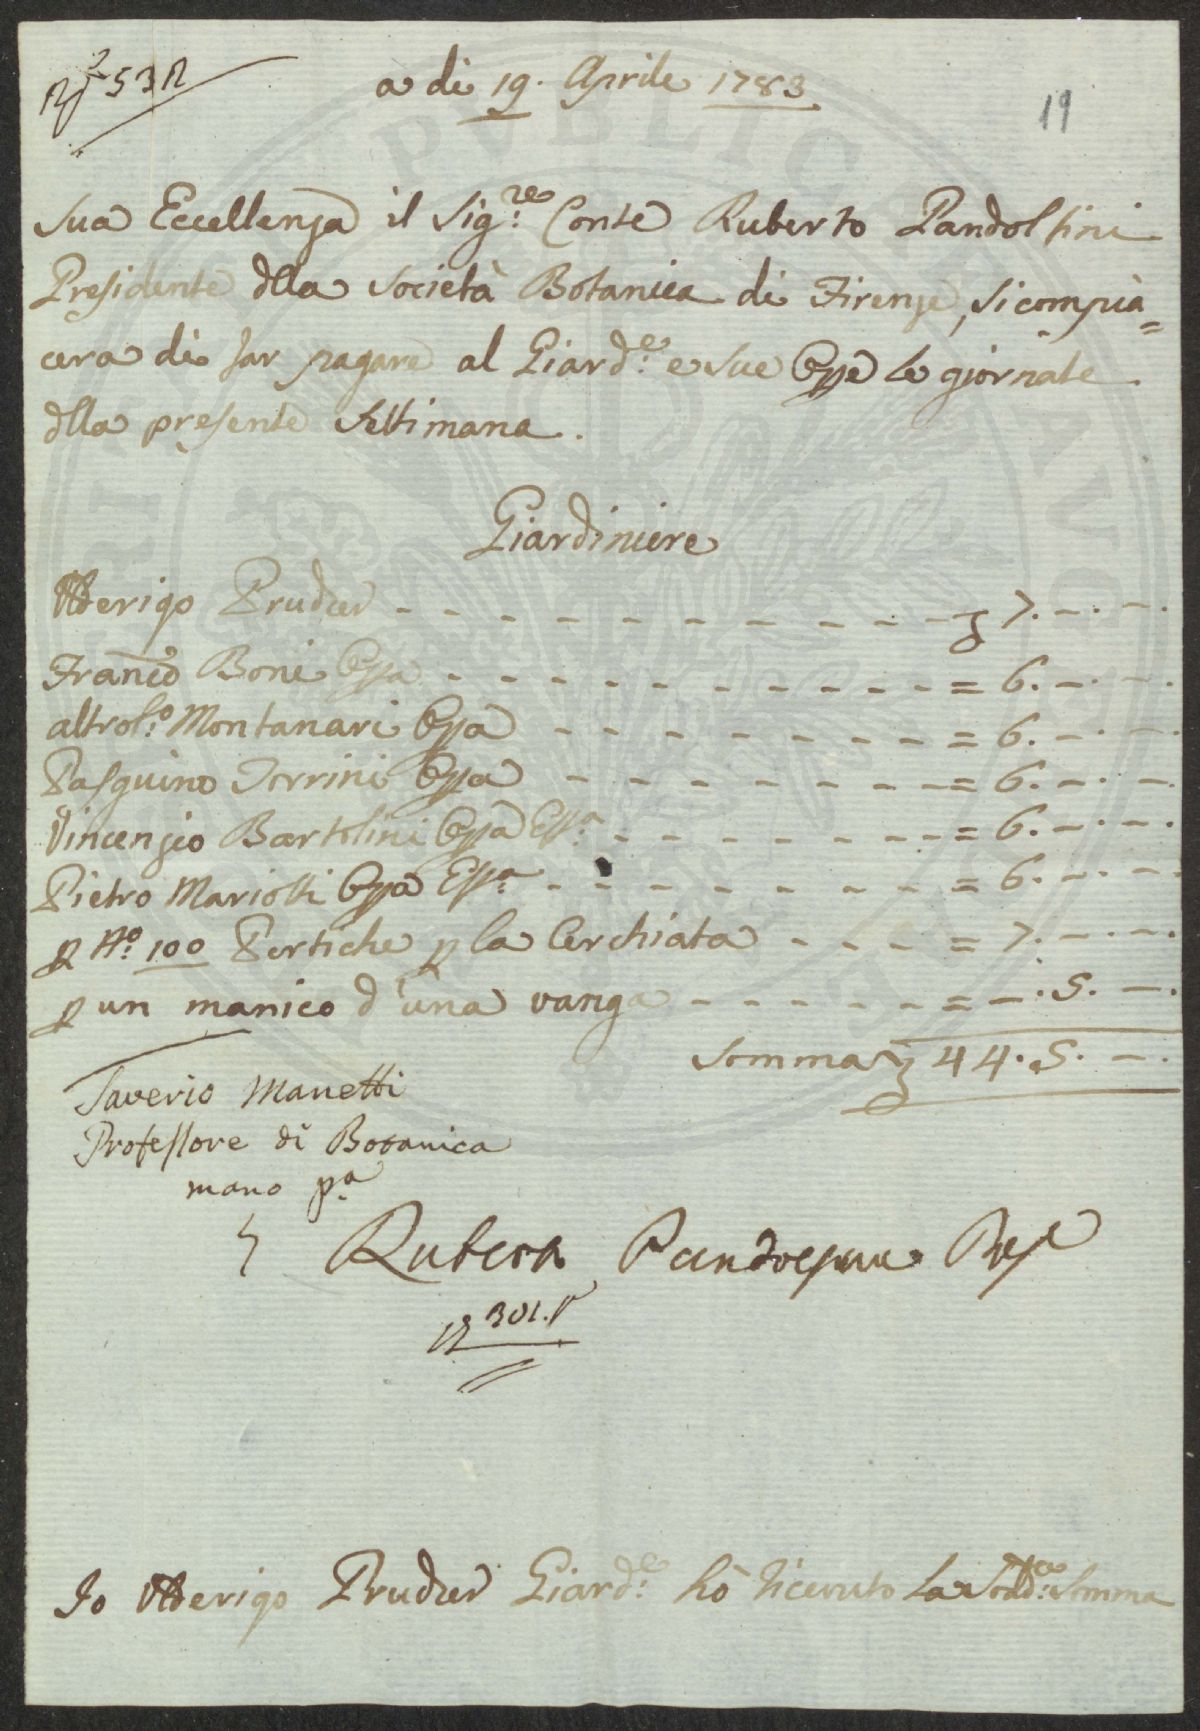 a di 19. Aprile 1783
19
Sua Eccellenza il Sig:re Conte Ruberto Pandolfini
Presidente dlla Società Botanica di Firenze, si compia=
cera di far pagare al Giard:e e sue Opre le giornate
dlla presente Settimana.
Giardiniere
Atterigo Prucker 7. — . — .
Franco Boni Opra = 6. — . — .
altro S:o Montanari Opra = 6. — . — .
Pasquino Torrini Opra = 6. — . — .
Vincenzio Bartolini Opra = 6. — . — .
Pietro Mariotti Opra = 6. — . — .
p N:o 100 Pertiche p la Cerchiata = 7. — . — .
p un manico d'una vanga = — . 5. — .
Somma 44. 5. — .
Saverio Manetti
Professore di Botanica
mano pa
Io Atterigo Prucker Giard:e hò ricevuto La Somma